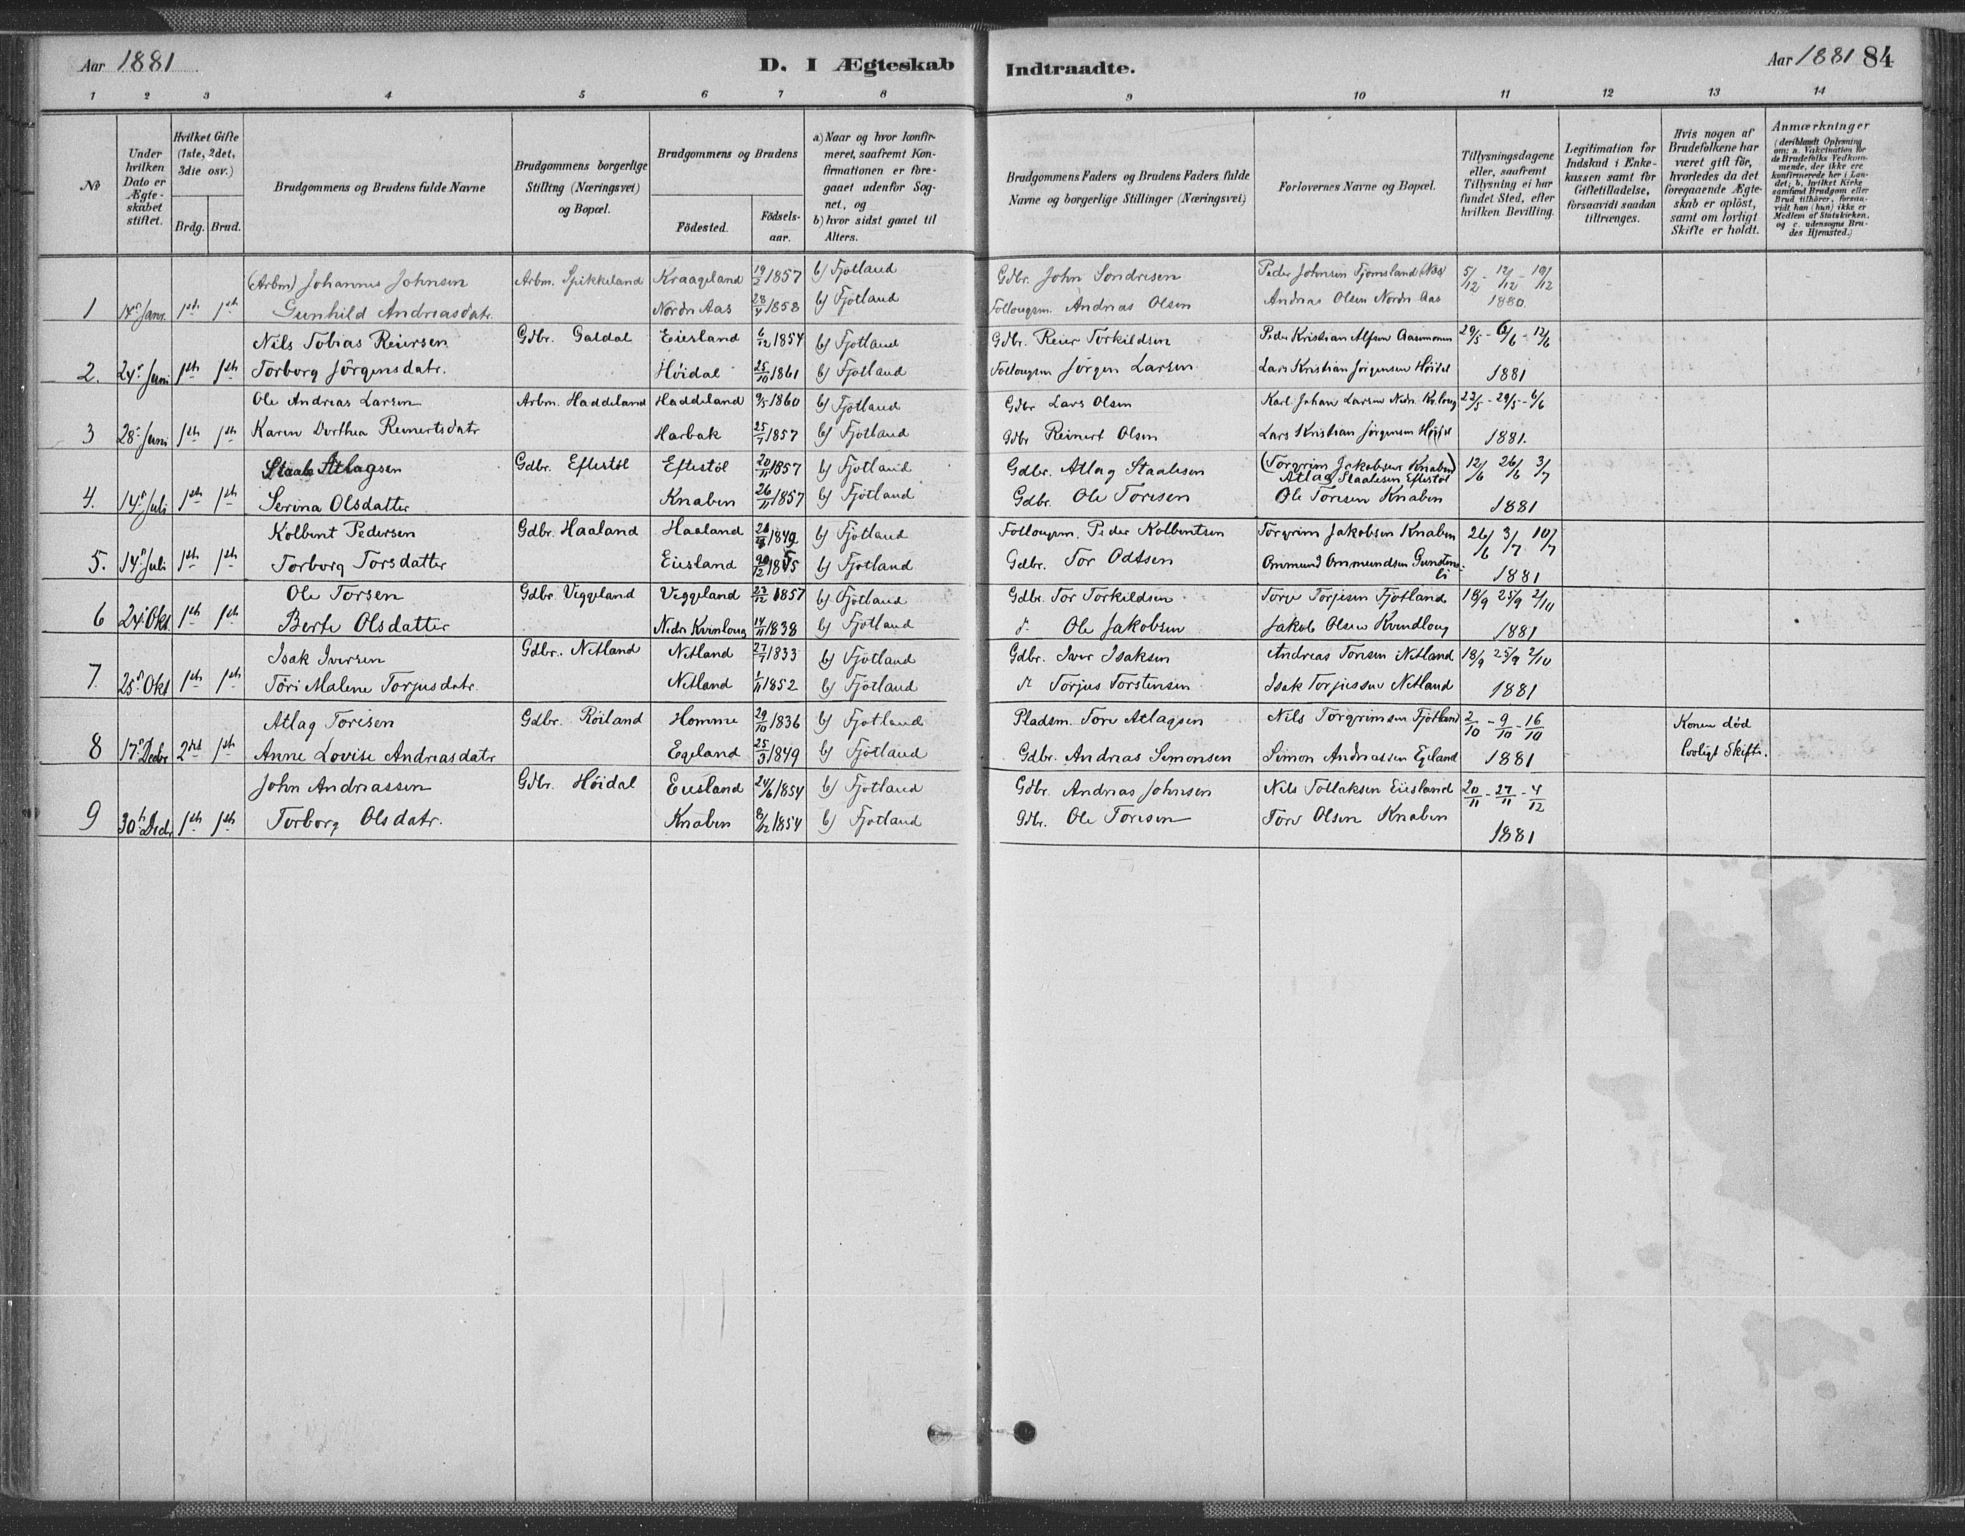 Aar 1881
D. I Ægteskab Indtraadte.
Aar 1881 84
1 2 3 4 5 6 7 8 9 10 11 12 13 14
No
Under hvilken Dato er Ægteskabet stiftet.
Hvilket Gifte (1ste, 2det, 3die osv.)
Brdg. Brud.
Brudgommens og Brudens fulde Navne
Brudgommens borgerlige Stilling (Næringsvei) og Bopæl.
Brudgommens og Brudens
Födested. Födselsaar.
a) Naar og hvor konfirmeret, saafremt Konfirmationen er foregaaet udenfor Sognet, og
b) hvor sidst gaaet til Alters.
Brudgommens Faders og Brudens Faders fulde Navne og borgerlige Stillinger (Næringsvei)
Forlovernes Navne og Bopæl.
Tillysningsdagene eller, saafremt Tillysning ei har fundet Sted, efter hvilken Bevilling.
Legitimation for Indskud i Enkekassen samt for Giftetilladelse, forsaavidt saadan tiltrænges.
Hvis nogen af Brudefolkene har været gift før, hvorledes da det foregaaende Ægteskab er opløst, samt om lovligt Skifte er holdt.
Anmærkninger (deriblandt Oplysning om: a. Vakcination for de Brudefolks Vedkommende, der ikke ere konfirmerede her i Landet; b. hvilket Kirkesamfund Brudgom eller Brud tilhører, forsaavidt han (hun) ikke er Medlem af Statskirken, og c. udensogns Brudes Hjemsted.)
(Arbm) Johannes Johnsen Arbm. Spikkeland Kraageland 19/2 1857 b) Fjotland Gdbr. John Sondresen Peder Johnsen Fjomsland (Næs) 5/12 - 12/12 - 19/12
1 14de Janr. 1ste 1ste Gunhild Andreasdatr. Nordre Aas 28/4 1858 b) Fjotland Follougsm. Andreas Olsen Andreas Olsen Nordre Aas 1880.
Nils Tobias Reiersen Gdbr. Galdal Eiesland 6/12 1854 b) Fjotland Gdbr. Reier Torkildsen Peder Kristian Alfsen 29/5 - 6/6 - 12/6
2. 24de Juni 1ste 1ste Torborg Jörgensdatr. Höidal 25/10 1861 b) Fjotland Follougsm Jörgen Larsen Lars Kristian Jörgensen Höidal 1881
Ole Andreas Larsen Arbm. Haddeland Haddeland 9/5 1860 b) Fjotland Gdbr Lars Olsen Karl Johan Larsen Nedr. Kvlong 22/5 - 29/5 - 6/6
3 28de Juni 1ste 1ste Karen Dorthea Reinertsdatr Harbak 25/1 1857 b) Fjotland Gdbr Reinert Olsen Lars Kristian Jörgensen Höidal 1881.
Staale Atlagsen Gdbr. Eftestöl Eftestöl 20/11 1857 b) Fjotland Gdbr. Atlag Staalesen (Torgrim Jakobsen Knaben) 12/6 26/6 3/7
Atlag Staalesen Eftestöl
4. 14de Juli 1ste 1ste Serina Olsdatter Knaben 26/11 1857 b) Fjotland Gdbr. Ole Toresen Ole Toresen Knaben 1881
Kolbent Pedersen Gdbr. Haaland Haaland 1849 b) Fjotland Follougsm. Peder Kolbentsen Torgrim Jakobsen Knaben 26/6 3/7 10/7
5. 14de Juli 1ste 1ste Torborg Torsdatter Eiesland b) Fjotland Gdbr. Tor Odtsen Ommund Ommundsen Gunstenli 1881
Ole Torsen Gdbr. Veggeland Veggeland 23/12 1857 b) Fjotland Gdbr. Tor Torkildsen Torge Torjesen Fjotland 18/9 25/9 2/10
6 24de Okt. 1ste 1ste Berte Olsdatter Nedre Kvinlong 14/11 1838 b) Fjotland d. Ole Jakobsen Jakob Olsen Kvindlong 1881
Isak Iversen Gdbr. Netland Netland 27/7 1833 b) Fjotland Gdbr. Iver Isaksen Andreas Toresen Netland 18/9 25/9 2/10
7. 25de Okt 1ste 1ste Töri Malene Torjusdatr. Netland 1/11 1852 b) Fjotland d. Torjus Torstensen Isak Torjussen Netland 1881
Atlag Toresen Gdbr. Röiland Homme 29/10 1836 b) Fjotland Pladsm. Tore Atlagsen Nils Torgrimsen Fjotland 2/10 - 9/10 - 16/10 Konen død
8 17de Decbr 2det 1ste Anne Lovise Andreasdatr Egeland 25/3 1849 b) Fjotland Gdbr. Andreas Simonsen Simon Andreassen Egeland 1881 lovligt Skifte.
John Andreassen Gdbr. Höidal Eiesland 24/6 1854 b) Fjotland Gdbr. Andreas Johnsen Nils Tollaksen Eiesland 20/11 - 27/11 - 4/12
9 30te Decbr 1ste 1ste Torborg Olsdatr. Knaben 8/12 1854 b) Fjotland Gdbr. Ole Toresen Tore Olsen Knaben 1881